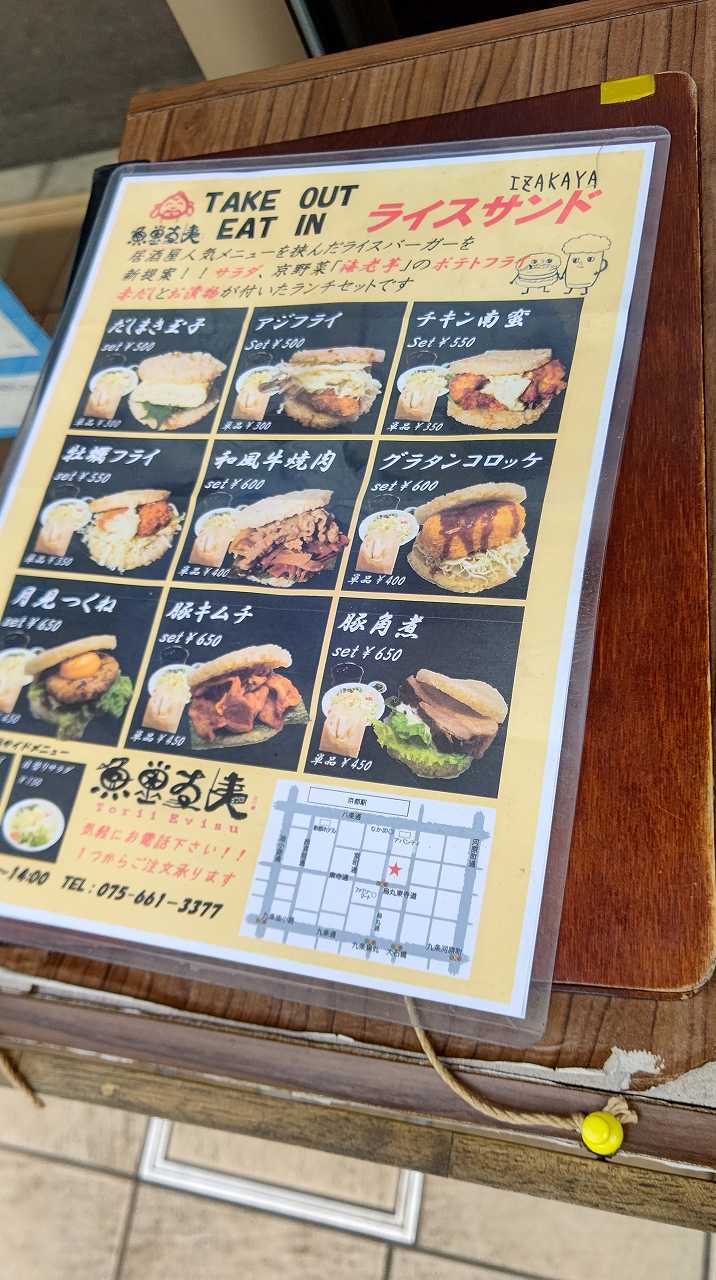 IZAKAYA
TAKE OUT
EAT IN
ライスサンド
居酒屋人気メニューを挟んだライスバーガーを
新提案!!サラダ、京野菜「海老芋」のポテトフライ
赤だしとお漬物が付いたランチセットです
だしまき玉子
set ¥500
単品 ¥300
アジフライ
Set ¥500
単品 ¥300
チキン南蛮
Set ¥550
単品 ¥350
牡蠣フライ
set ¥550
単品 ¥350
和風牛焼肉
set ¥600
単品 ¥400
グラタンコロッケ
set ¥600
単品 ¥400
月見つくね
set ¥650
豚キムチ
set ¥650
単品 ¥450
豚角煮
set ¥650
単品 ¥450
サイドメニュー
¥150
Torii Evisu
気軽にお電話下さい!!
1つからご注文承ります
~14:00 TEL:075-661-3377
京都駅
八条通
アバンティ
室町通
東寺通
烏丸東寺通
烏丸通
河原町通
九条通
九条烏丸
大石橋
九条河原町